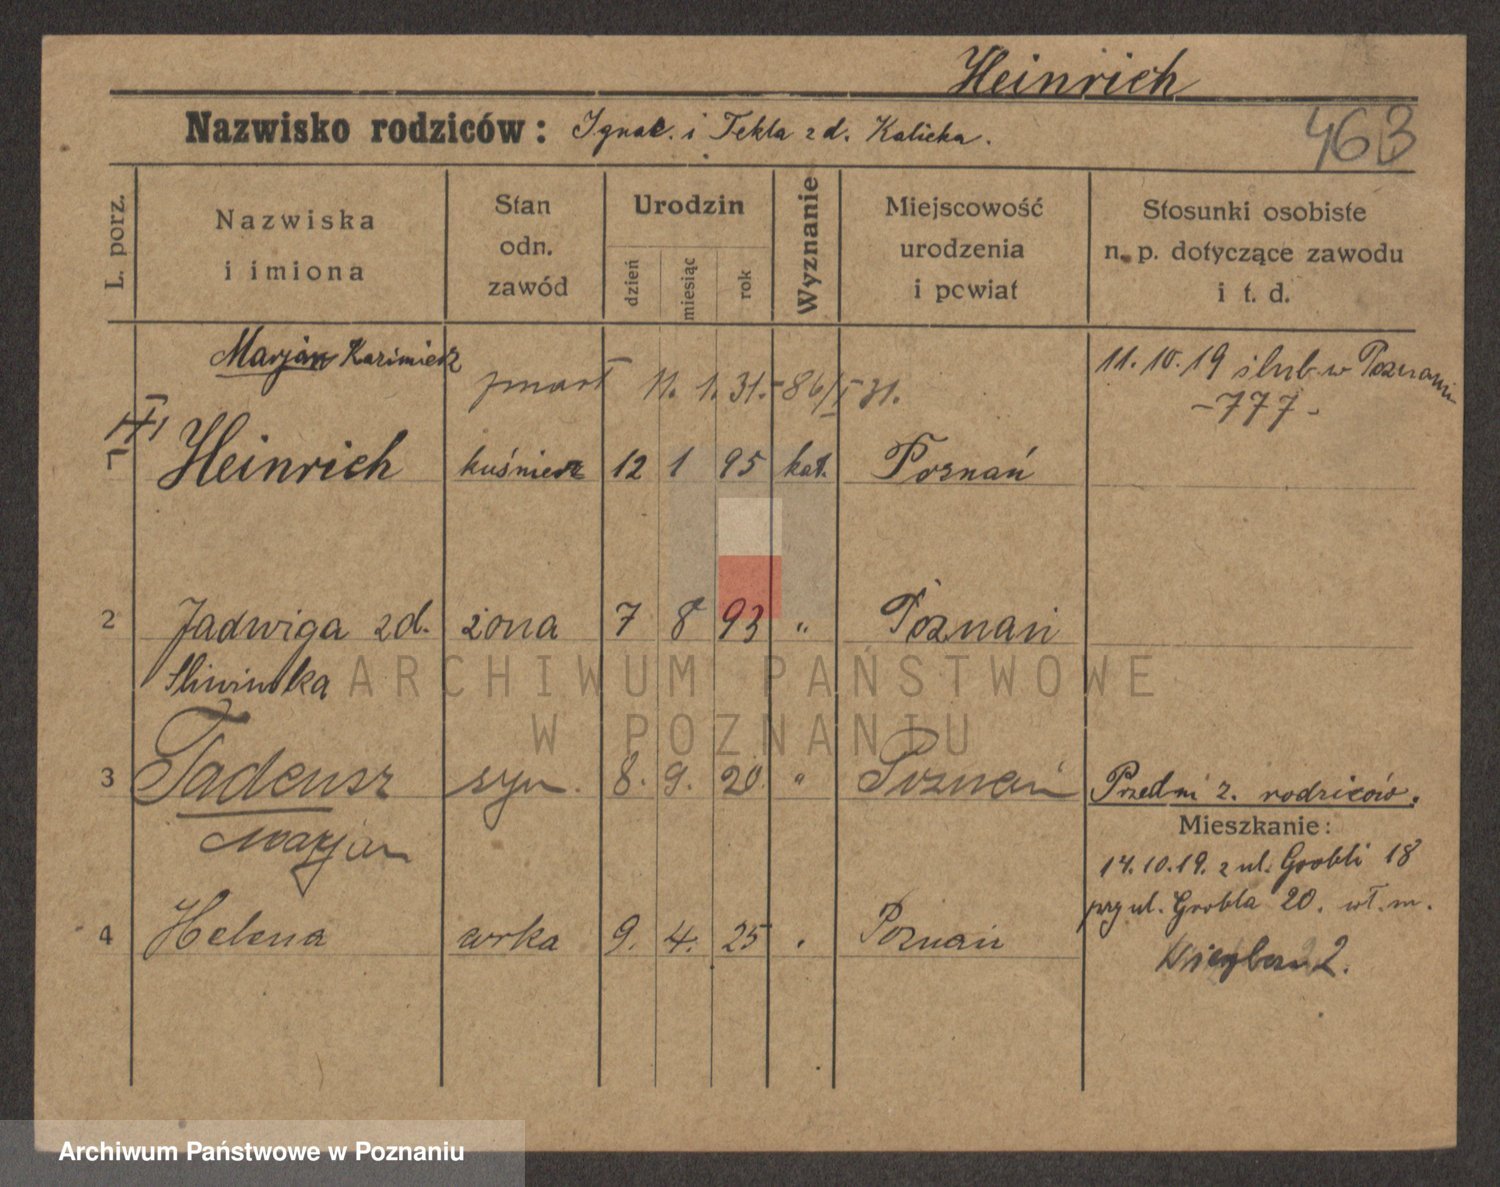 Heinrich
Nazwisko rodziców: Ignac. i Tekla zd. Kalicka.
463
L. porz.
Nazwiska
i imiona
Stan
odn.
zawód
Urodzin
dzień
miesiąc
rok
Wyznanie
Miejscowość
urodzenia
i pcwiat
Stosunki osobiste
n. p. dotyczące zawodu
i t. d.
Marjan Kazimierz
zmarł 11. 1. 31. - 86/I 31.
11. 10. 19 ślub w Poznaniu
- 777 -
1 Heinrich kuśnierz 12 1 95 kat. Poznań
2 Jadwiga zd. żona 7 8 93 " Poznań
Śliwińska
3 Tadeusz syn. 8. 9. 20. " Poznań
Marjan
Przedni z. rodziców.
Mieszkanie:
14. 10. 19. z ul. Grobli 18
przy ul. Grobla 20. wł. m.
4 Helena córka 9. 4. 25 " Poznań
ARCHIWUM PAŃSTWOWE
W POZNANIU
Archiwum Państwowe w Poznaniu